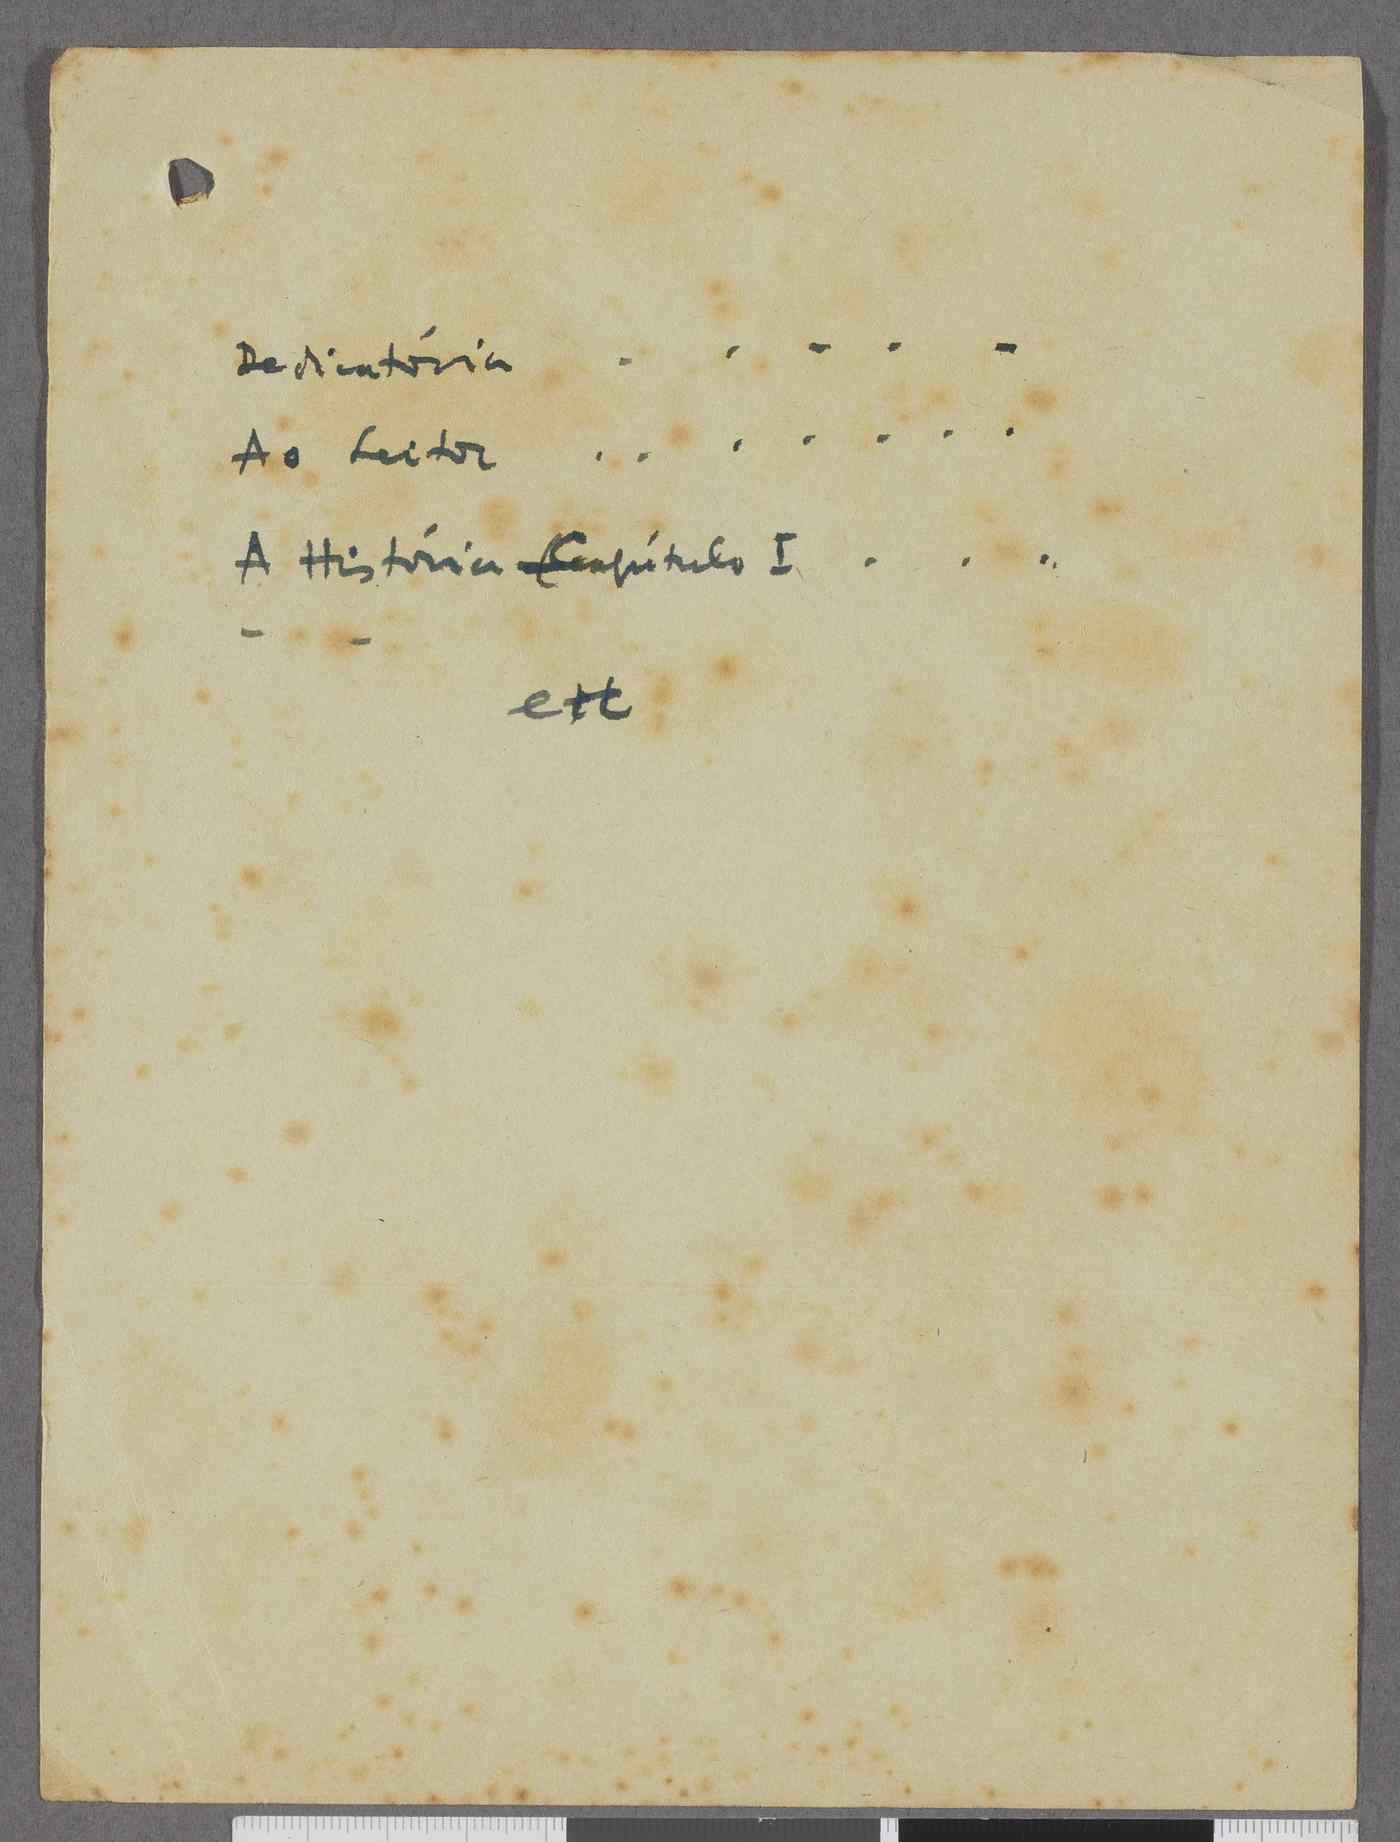 Dedicatória . . - . -
Ao Leitor . . . . . . .
A História - Capítulo I . . . .
- -
etc